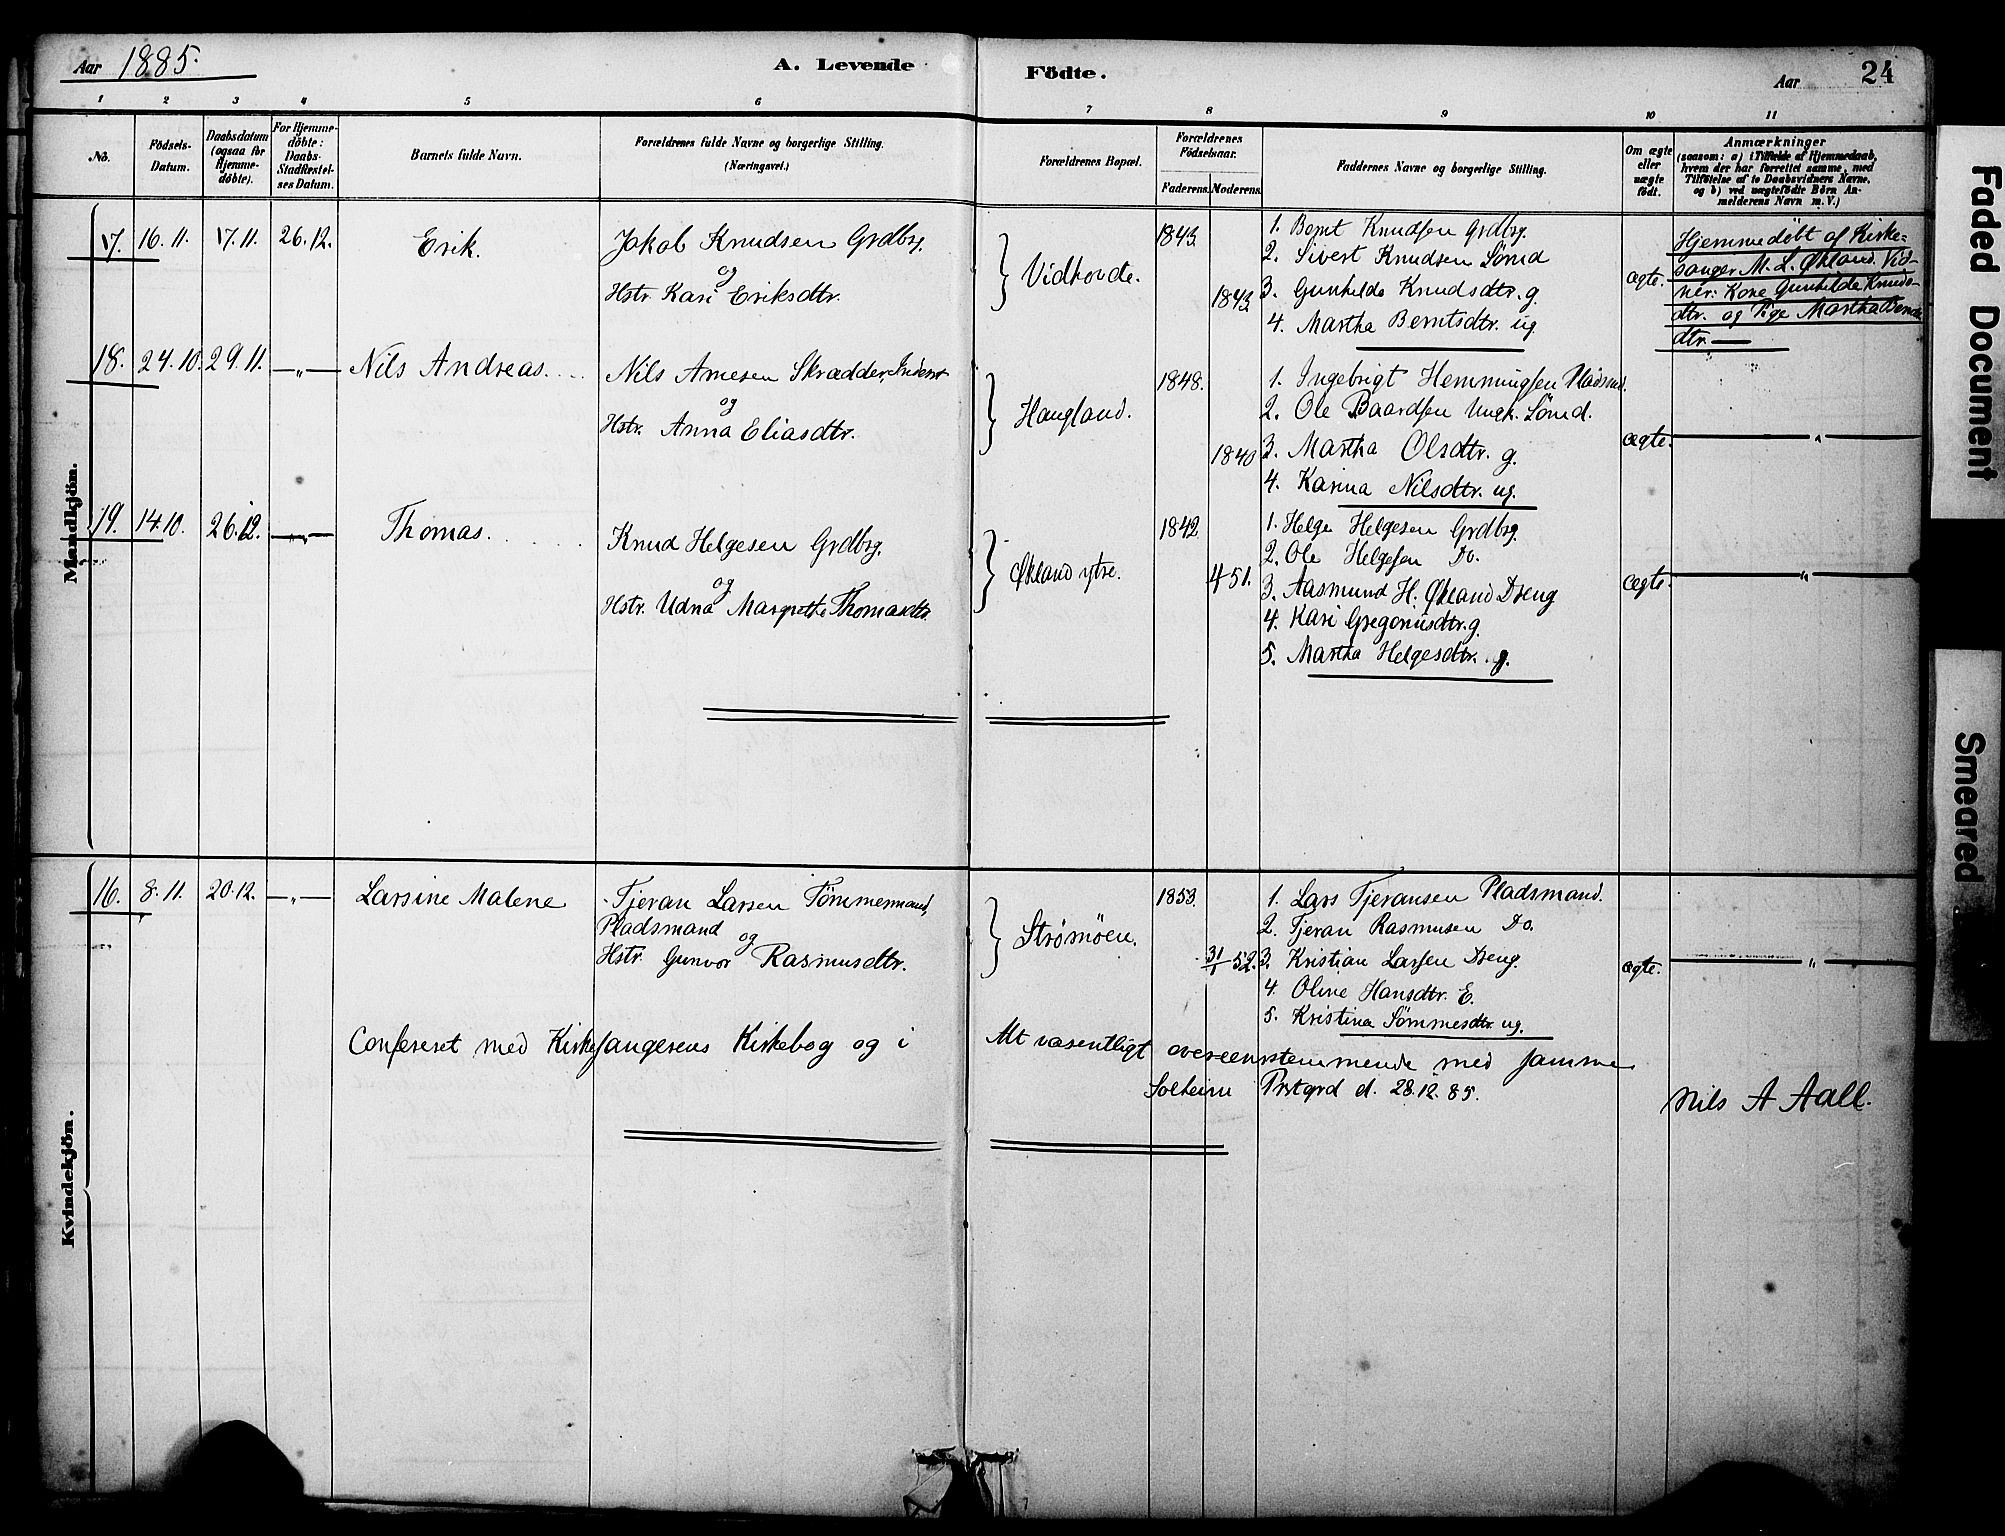 Aar 1885.
A. Levende Födte.
Aar 24
1 2 3 4 5 6 7 8 9 10 11
No.
Födsels-
Datum.
Daabsdatum
(ogsaa for
Hjemme-
döbte).
For Hjemme-
döbte:
Daabs-
Stadfæstel-
ses Datum.
Barnets fulde Navn.
Forældrenes fulde Navne og borgerlige Stilling.
(Næringsvei.)
Forældrenes Bopæl.
Forældrenes
Födselsaar.
Faderens. Moderens.
Faddernes Navne og borgerlige Stilling.
Om ægte
eller
uægte
födt.
Anmærkninger
(saasom: a) i Tilfælde af Hjemmedaab,
hvem der har forrettet samme, med
Tilföielse af to Daabsvidners Navne,
og b) ved uægtefödte Börn An-
melderens Navn m. V.)
Mandkjön.
17. 16.11. 17.11. 26.12. Erik.
Jakob Knudsen Grdbrg.
og
Hstr. Kari Eriksdtr.
Vidhovde.
1843.
1843
1. Bernt Knudsen Grdbrg.
2. Sivert Knudsen Sömd
3. Gunhilde Knudsdtr. g.
4. Martha Berntsdtr. ug.
ægte.
Hjemmedöbt af Kirke-
sanger M. L. Økland. Vid-
ner: Kone Gunhilde Knuds-
dtr. og Pige Martha Bernts
dtr. —
18. 24.10. 29.11. —„— Nils Andreas.
Nils Arnesen Skrædder,
og
Hstr. Anna Eliasdtr.
Haugland.
1848.
1840
1. Ingebrigt Hemmingsen Pladsmd.
2. Ole Baardsen Ungk. Sömd.
3. Martha Olsdtr. g.
4. Karina Nilsdtr. ug.
ægte. „
19. 14.10. 26.12. —„— Thomas.
Knud Helgesen Grdbrg.
og
Hstr. Udna Margrethe Thomasdtr.
Økland ytre.
1842.
451.
1. Helge Helgesen Grdbrg.
2. Ole Helgesen Do.
3. Aasmund H. Økland Dreng
4. Kari Gregoriusdtr. g.
5. Martha Helgesdtr. g.
ægte. „
Kvindekjön.
16. 8.11. 20.12. —„— Larsine Malene
Tjeran Larsen Tömmermand,
Pladsmand
og
Hstr. Gunvor Rasmusdtr.
Strømöen.
1853.
31/1 52.
1. Lars Tjeransen Pladsmand.
2. Tjeran Rasmusen Do.
3. Kristian Larsen Dreng.
4. Oline Hansdtr. E.
5. Kristina Sömmesdtr. ug.
ægte. „
Confereret med Kirkesangerens Kirkebog og i Alt væsentligt overeensstemmende med samme
Solheim Prstgrd d. 28.12.85.
Nils A Aall.
Faded Document
Smeared